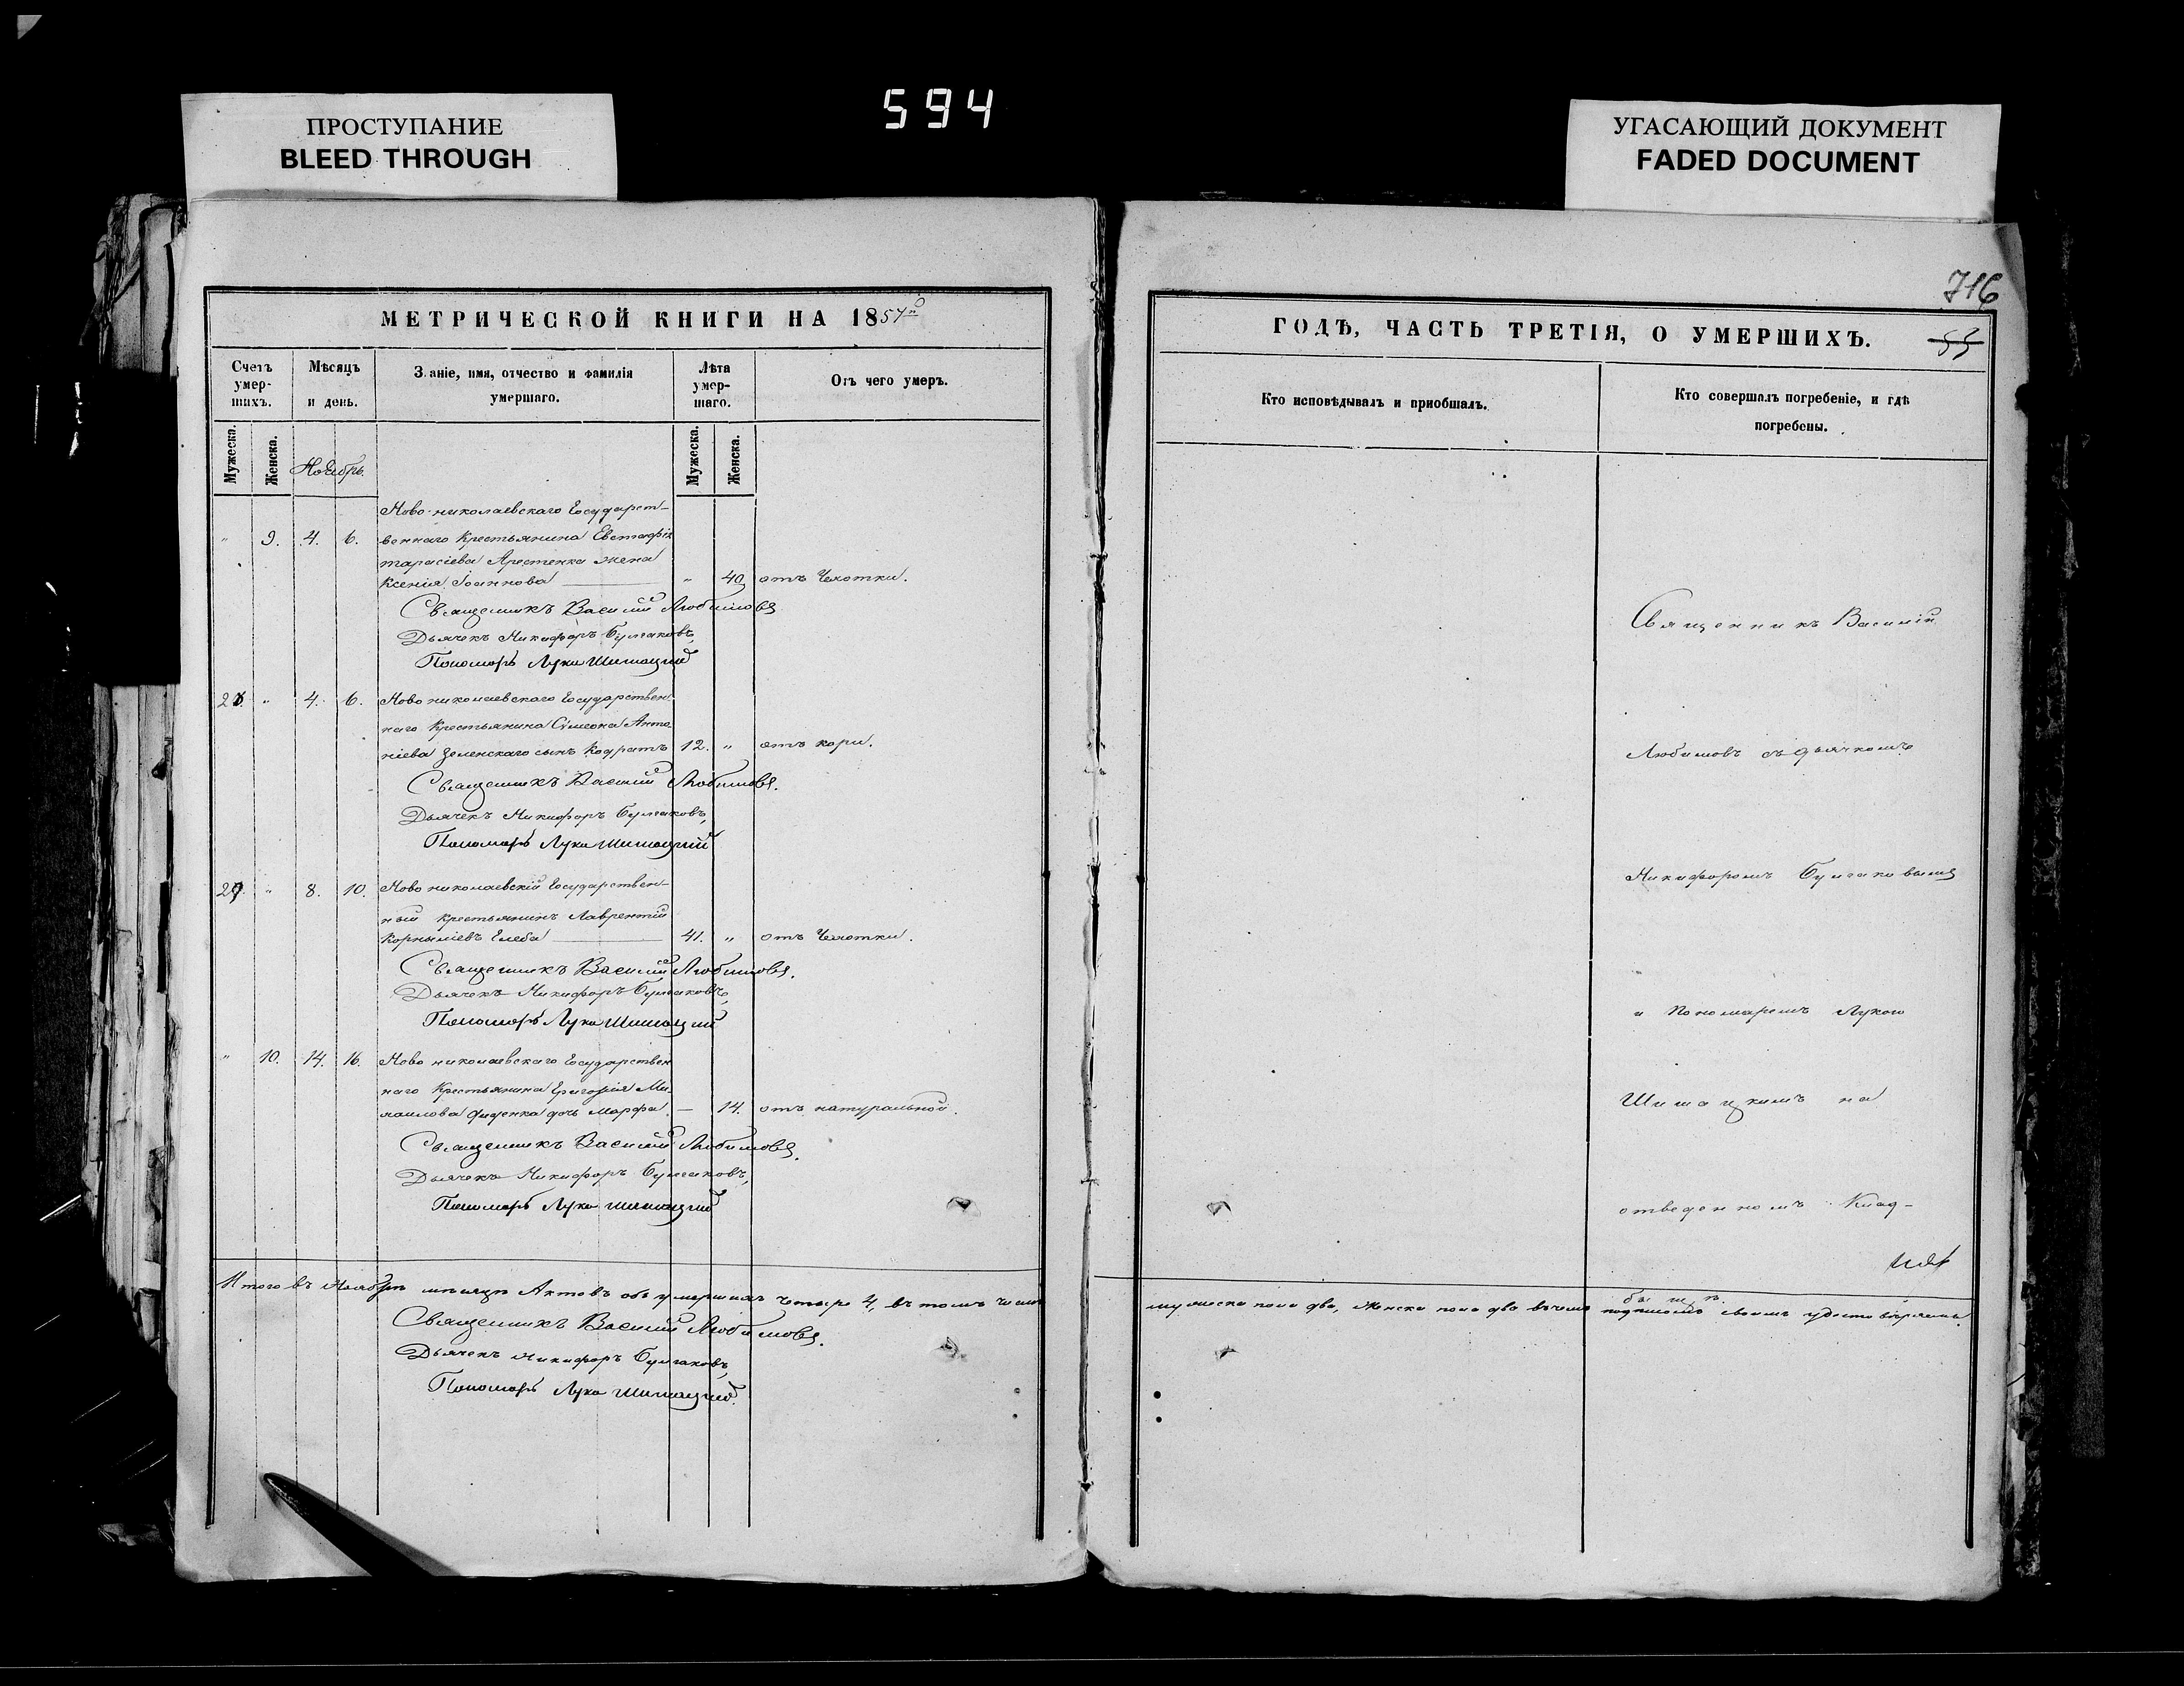 594
ПРОСТУПАНИЕ
BLEED THROUGH
УГАСАЮЩИЙ ДОКУМЕНТ
FADED DOCUMENT
МЕТРИЧЕСКОЙ КНИГИ НА 1857й
Счетъ умер-шихъ.
Мѣсяцъ и день.
Званіе, имя, отчество и фамилія умершаго.
Лѣта умер-шаго.
Отъ чего умеръ.
Мужеска. Женска. Ноябрь. Мужеска. Женска.
Ново-николаевскаго Государст-
„ 9. 4. 6. веннаго Крестьянина Евстафія
тарасіева Арестенка жена
Ксенія Іоаннова — „ 40 отъ Чахотки.
Священникъ Василій Любимовъ
Дьячекъ Никифоръ Булгаковъ,
Пономарь Лука Шишацкій
„ 4. 6. Ново николаевскаго Государствен-
наго Крестьянина Сѵмеона Анто-
ніева Зеленскаго сынъ Кодратъ 12. „ отъ кори.
Священникъ Василій Любимовъ.
Дьячекъ Никифоръ Булгаковъ,
Пономарь Лука Шишацкій
„ 8. 10. Ново николаевскій Государствен-
ный крестьянинъ Лаврентій
Корниліевъ Глеба — 41. „ отъ Чахотки.
Священникъ Василій Любимовъ.
Дьячекъ Никифоръ Булгаковъ,
Пономарь Лука Шишацкій
„ 10. 14. 16. Ново николаевскаго Государствен
наго Крестьянина Григорія Ми-
хаилова дочь Марфа. — 14. отъ натуральной.
Священникъ Василій Любимовъ.
Дьячекъ Никифоръ Булгаковъ,
Пономарь Лука Шишацкій
Итого въ Ноябрѣ мѣсяцѣ Актовъ объ умершихъ четыре 4, въ томъ числѣ
Священникъ Василій Любимовъ.
Дьячекъ Никифоръ Булгаковъ,
Пономарь Лука Шишацкій.
716
ГОДѢ, ЧАСТЬ ТРЕТІЯ, О УМЕРШИХЪ.
55
Кто исповѣдывалъ и пріобщалъ.
Кто совершалъ погребеніе, и гдѣ погребены.
Священникъ Василій
Любимовъ съ дьячкомъ
Никифоромъ Булгаковымъ
и Пономаремъ Лукою
Шишацкимъ на
отведенномъ Клад-
бищѣ.
мужеска пола два, женска пола два въ чемъ подписомъ своимъ удостовѣряемъ.